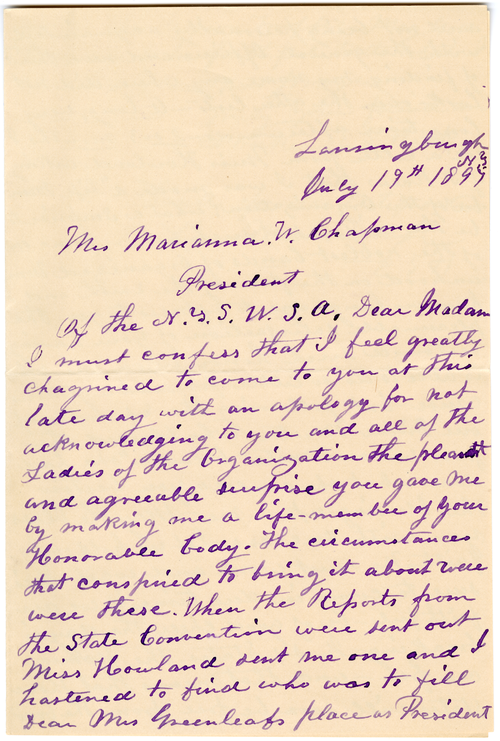 Lansingburgh
N.Y.
July 19th 1897
Mrs Marianna. W. Chapman
President
Of the N.Y.S. W.S.A. Dear Madam
I must confess that I feel greatly
chagrined to come to you at this
late day with an apology for not
acknowledging to you and all of the
Ladies of the Organization the pleasant
and agreeable surprise you gave me
by making me a life-member of your
Honorable body. The circumstances
that conspired to bring it about were
were these. When the Reports from
the State Convention were sent out
Miss Howland sent me one and I
hastened to find who was to fill
Dear Mrs Greenleafs place as President